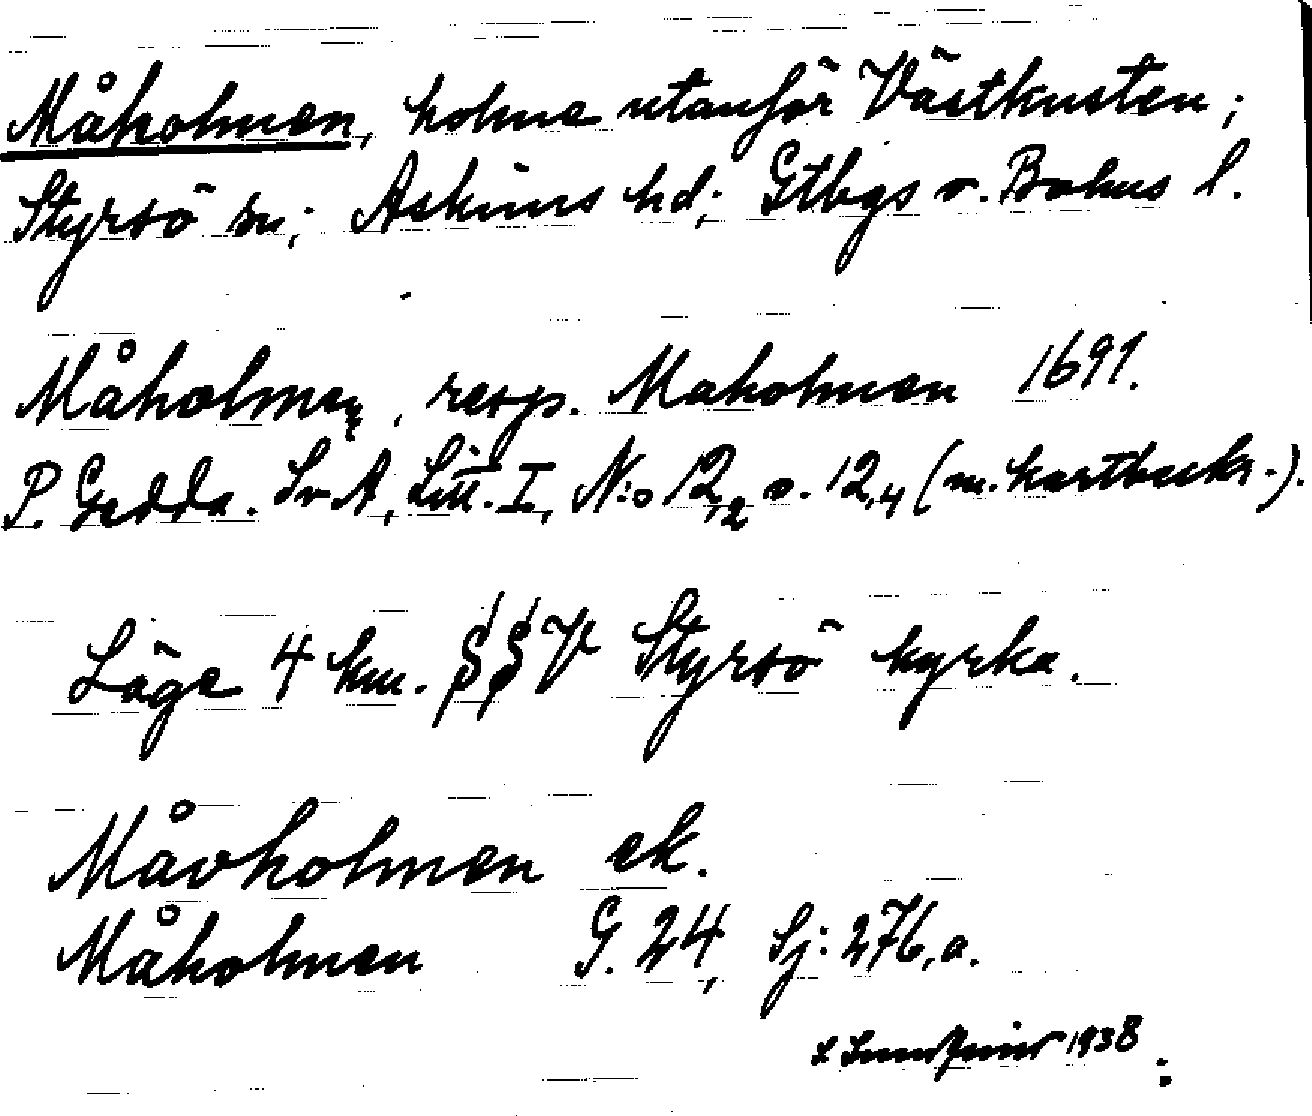 Måholmen, holme utanför Västkusten;
Styrsö sn; Askims hd; Gtbgs o. Bohus l.
Måholmen, resp. Maholmen 1691.
P. Gedda. Sv A, Litt. I, N:o 12,2 o. 12,4 (m. kartbeskr.).
Läge 4 km. V Styrsö kyrka.
Måvholmen ek.
Måholmen G. 24, Sj: 276,a.
1938